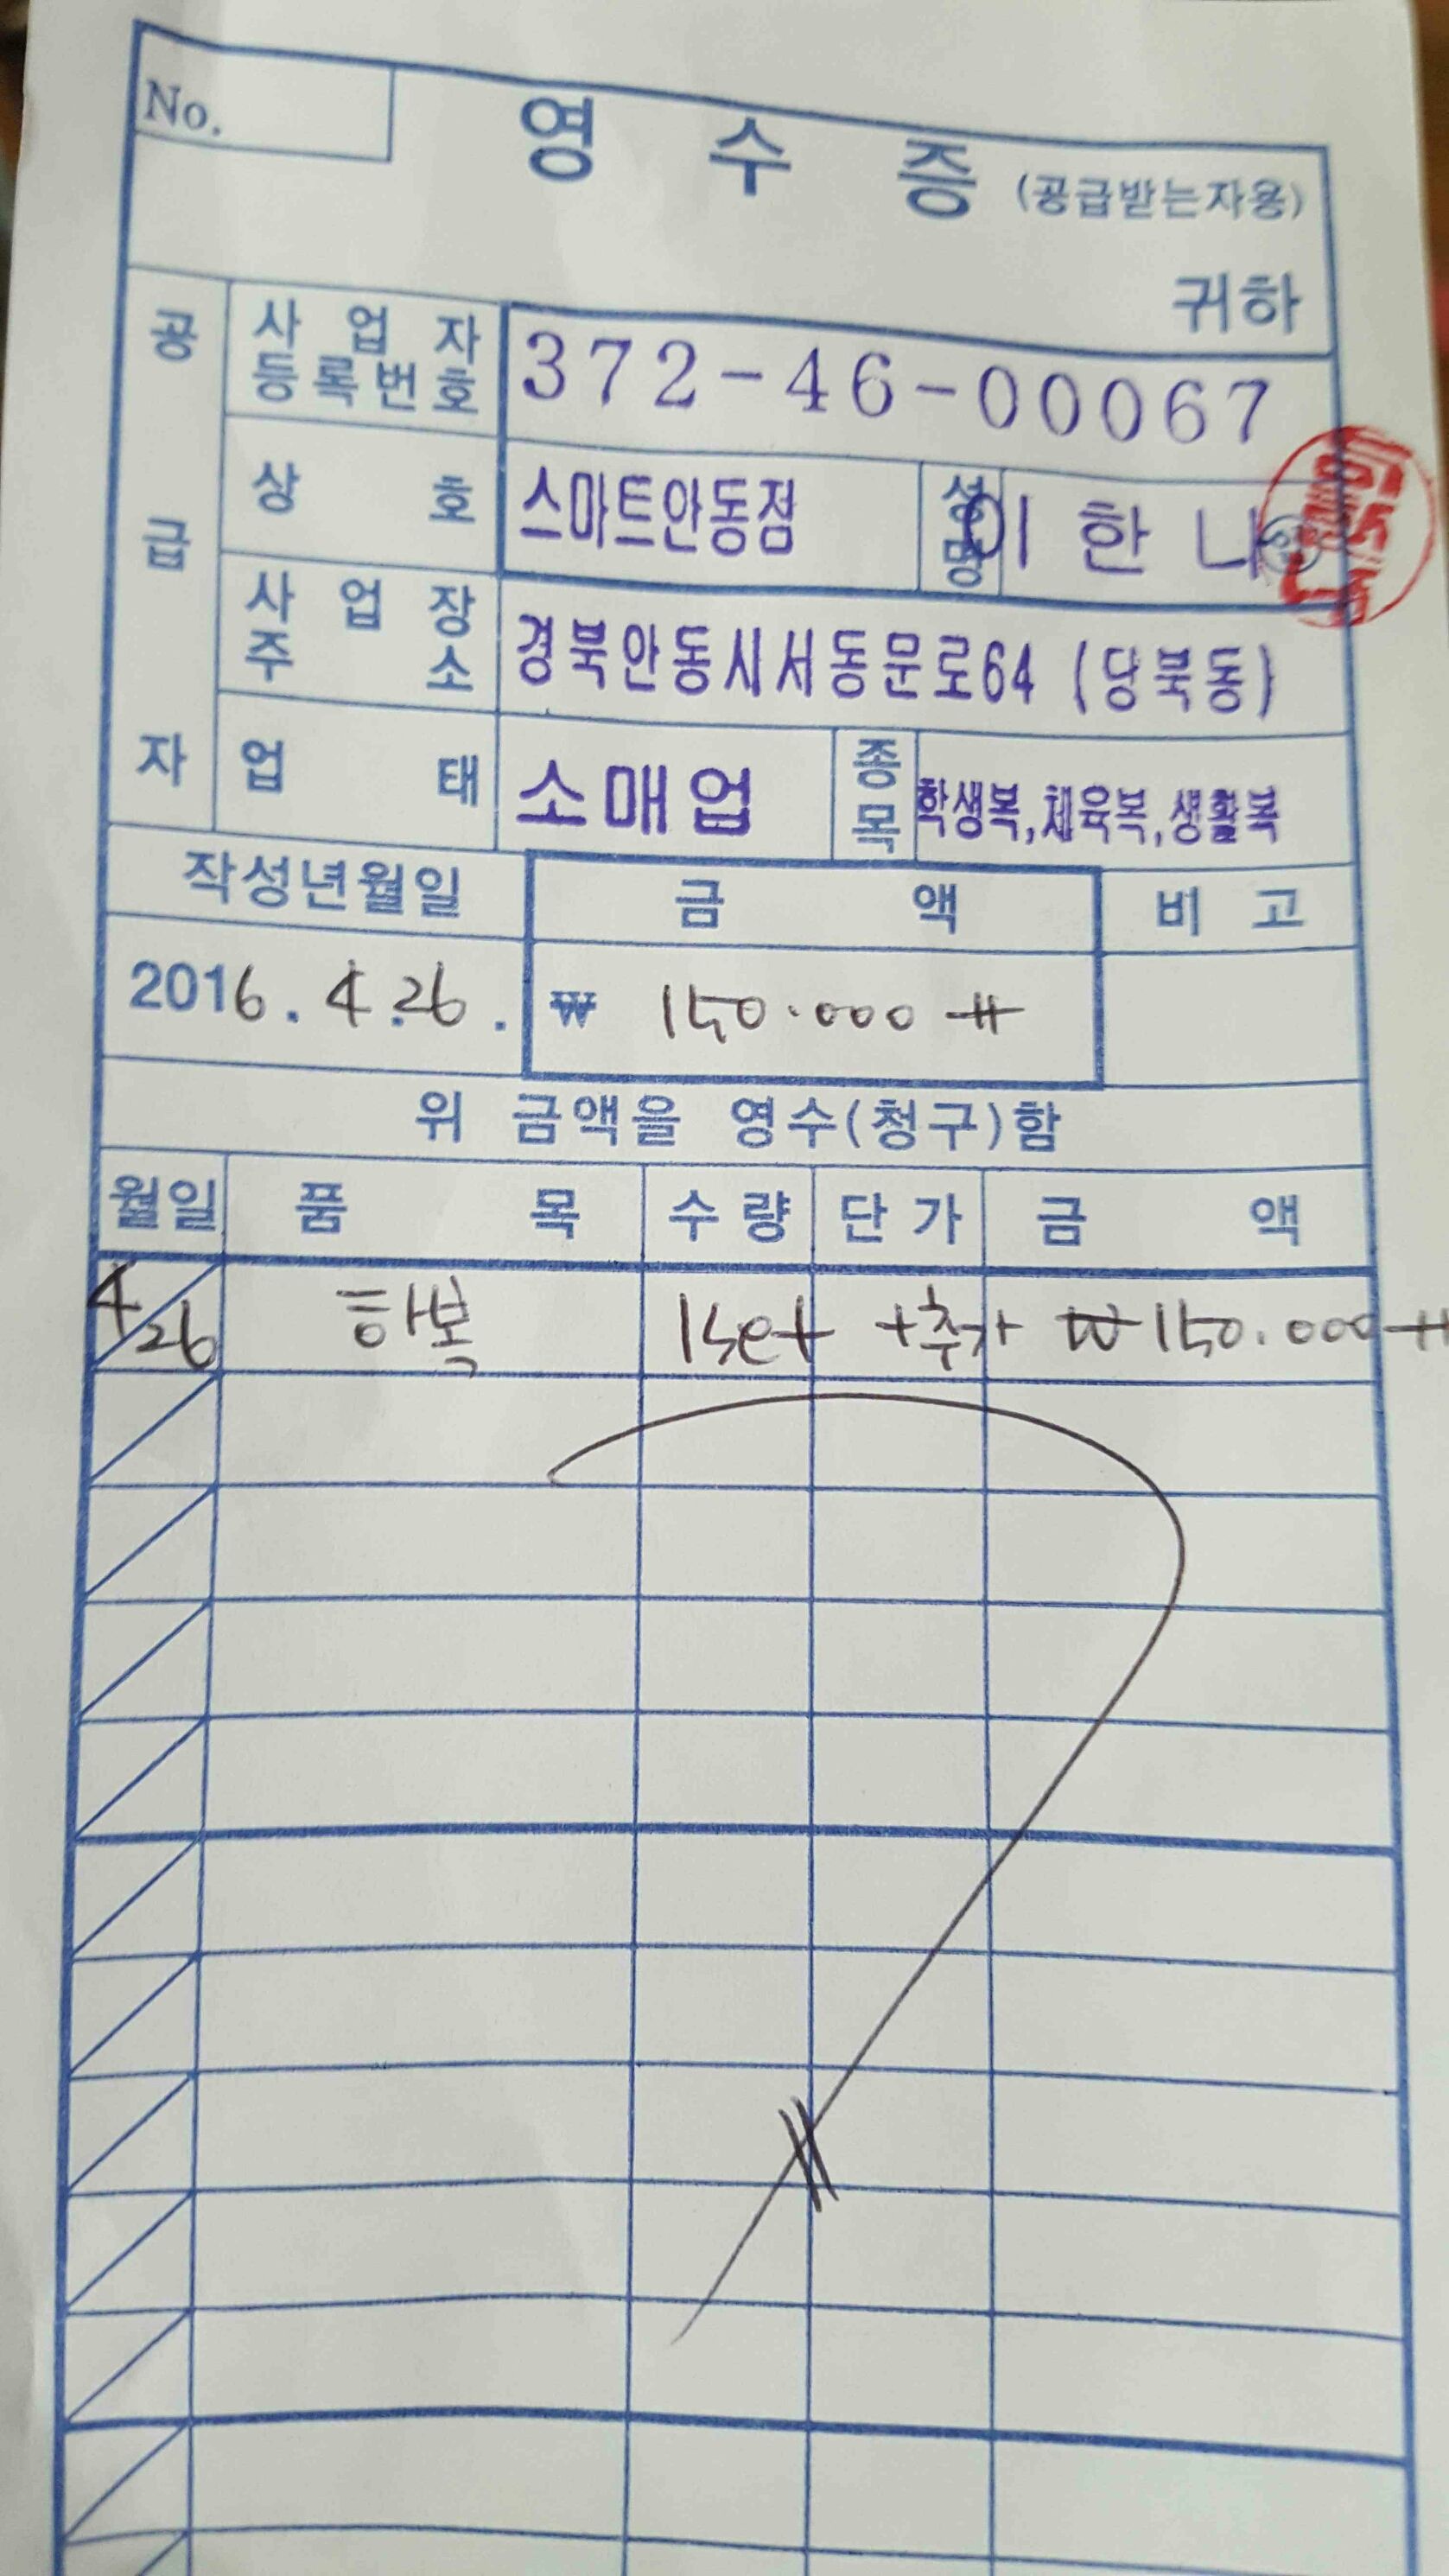 No.
영 수 증 (공급받는자용)
귀하
공 급 자
사 업 자 등록번호 372-46-00067
상 호 스마트안동점 성명 이한나 인
사 업 장 주 소 경북안동시서동문로64 (당북동)
업 태 소매업 종목 학생복,체육복,생활복
작성년월일 금 액 비 고
2016. 4. 26. ₩ 150.000
위 금액을 영수(청구)함
월일 품 목 수 량 단 가 금 액
4/26 하복 1set +추가 ₩150.000